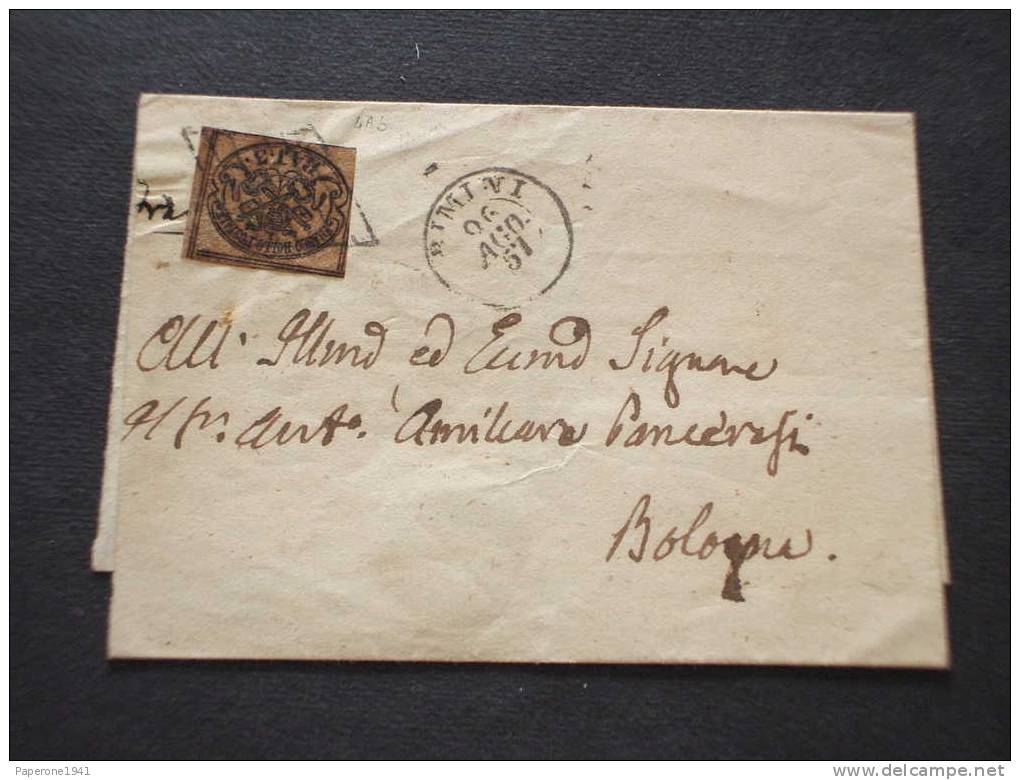 4A5
BAJ. 3.
RIMINI
26
AGO.
57
All' Illmo ed Eccmo Signore
Amilcare Pancerasi
Bologna.
Paperone1941
www.delcampe.net